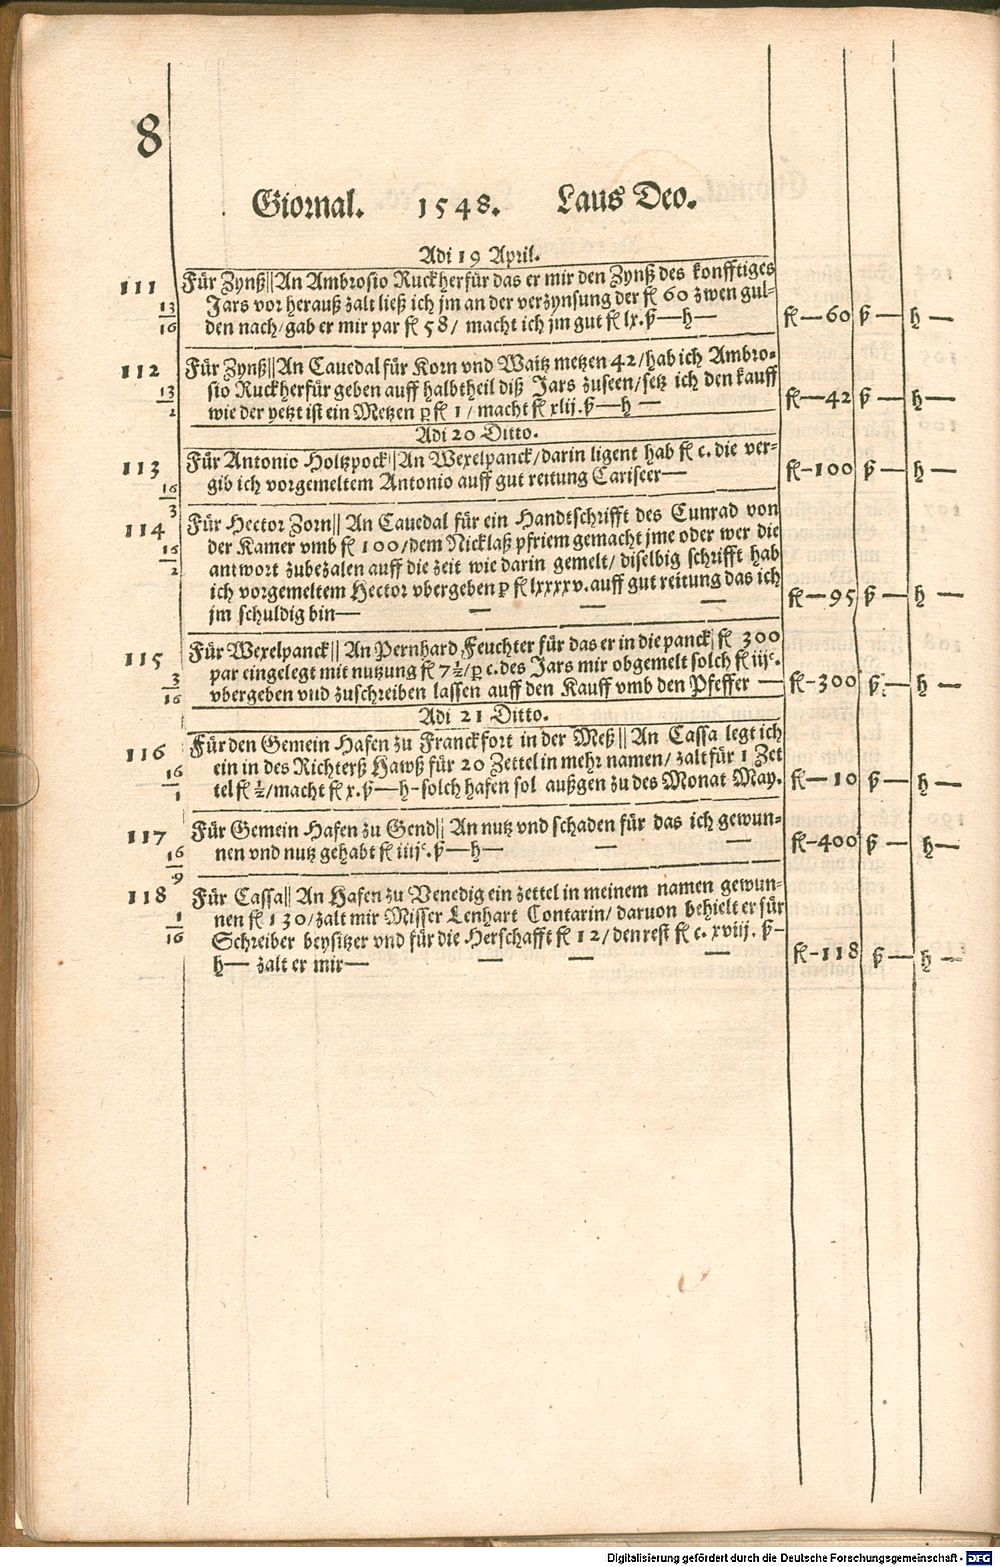 8
Giornal. 1548. Laus Deo.
Adi 19 April.
111 Für Zynß|| An Ambrosio Ruckherfür das er mir den Zynß des konfftiges
13 Jars vor herauß zalt ließ ich jm an der verzynsung der fl 60 zwen gul-
16 den nach/ gab er mir par fl 58/ macht ich jm gut fl lx. ß—h— fl—60 ß— h—
112 Für Zynß|| An Cauedal für Korn vnd Waitz metzen 42/ hab ich Ambro-
13 sio Ruckherfür geben auff halbtheil diß Jars zuseen/ setz ich den kauff
2 wie der yetzt ist ein Metzen ꝑ fl 1/ macht fl xlij. ß—h— fl—42 ß— h—
Adi 20 Ditto.
113 Für Antonio Holtzpock|| An Wexelpanck/ darin ligent hab fl c. die ver-
16 gib ich vorgemeltem Antonio auff gut reitung Cariseer— fl—100 ß— h—
3
114 Für Hector Zorn|| An Cauedal für ein Handtschrifft des Cunrad von
16 der Kamer vmb fl 100/ dem Nicklaß pfriem gemacht jme oder wer die
2 antwort zubezalen auff die zeit wie darin gemelt/ diselbig schrifft hab
ich vorgemeltem Hector vbergeben ꝑ fl lxxxxv. auff gut reitung das ich fl—95 ß— h—
jm schuldig bin— — — —
115 Für Wexelpanck|| An Pernhard Feuchter für das er in die panck fl 300
3 par eingelegt mit nutzung fl 7½/ ꝑ c. des Jars mir obgemelt solch fl iijᶜ.
16 vbergeben vnd zuschreiben lassen auff den Kauff vmb den Pfeffer — fl—300 ß— h—
Adi 21 Ditto.
116 Für den Gemein Hafen zu Franckfort in der Meß|| An Cassa legt ich
16 ein in des Richterß Hawß für 20 Zettel in mehr namen/ zalt für 1 Zet
1 tel fl ½/ macht fl x. ß—h- solch hafen sol außgen zu des Monat May. fl—10 ß— h—
117 Für Gemein Hafen zu Gend|| An nutz vnd schaden für das ich gewun-
16 nen vnd nutz gehabt fl iiijᶜ. ß—h— — — fl—400 ß— h—
9
118 Für Cassa|| An Hafen zu Venedig ein zettel in meinem namen gewun-
1 nen fl 130/ zalt mir Misser Lenhart Contarin/ daruon behielt er für
16 Schreiber beysitzer vnd für die Herschafft fl 12/ den rest fl c. xviij. ß—
h— zalt er mir— — — — fl—118 ß— h—
Digitalisierung gefördert durch die Deutsche Forschungsgemeinschaft - DFG